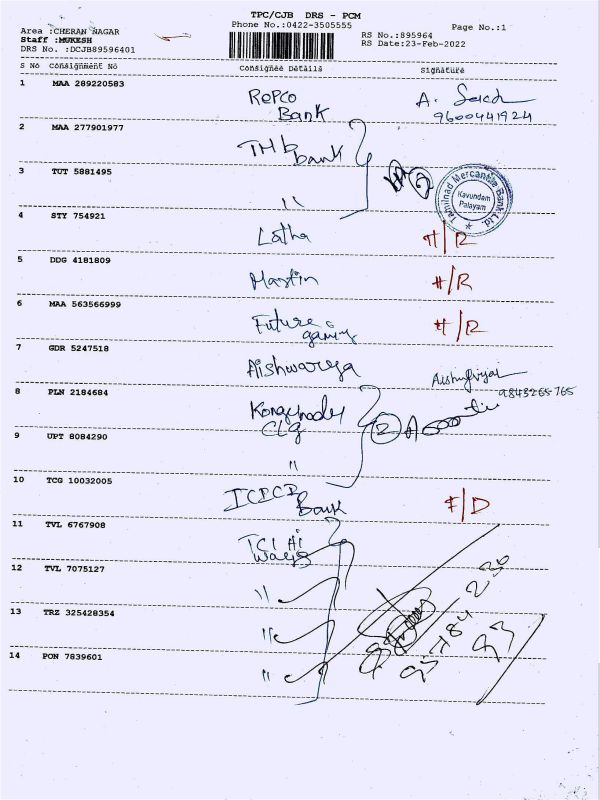 TPC/CJB DRS - PCM
Area :CHERAN NAGAR
Phone No.:0422-3505555
Page No.:1
Staff :MUKESH
RS No.:895964
DRS No. :DCJB89596401
RS Date:23-Feb-2022
S No Consignment No Consignee Details Signature
1 MAA 289220583 Repco Bank A.
9600441924
2 MAA 277901977 TMB bank
3 TUT 5881495 "
Tamilnad Mercantile Bank Ltd.
Kavundam Palayam
4 STY 754921 Latha H/R
5 DDG 4181809 Martin H/R
6 MAA 563566999 Future gaming H/R
7 GDR 5247518 Aishwarya
9843265765
8 PLN 2184684 Kongunadu Clg 2
9 UPT 8084290 "
10 TCG 10032005 ICICI Bank F/D
11 TVL 6767908 TCI Hi ways
12 TVL 7075127 "
13 TRZ 325428354 "
14 PON 7839601 "